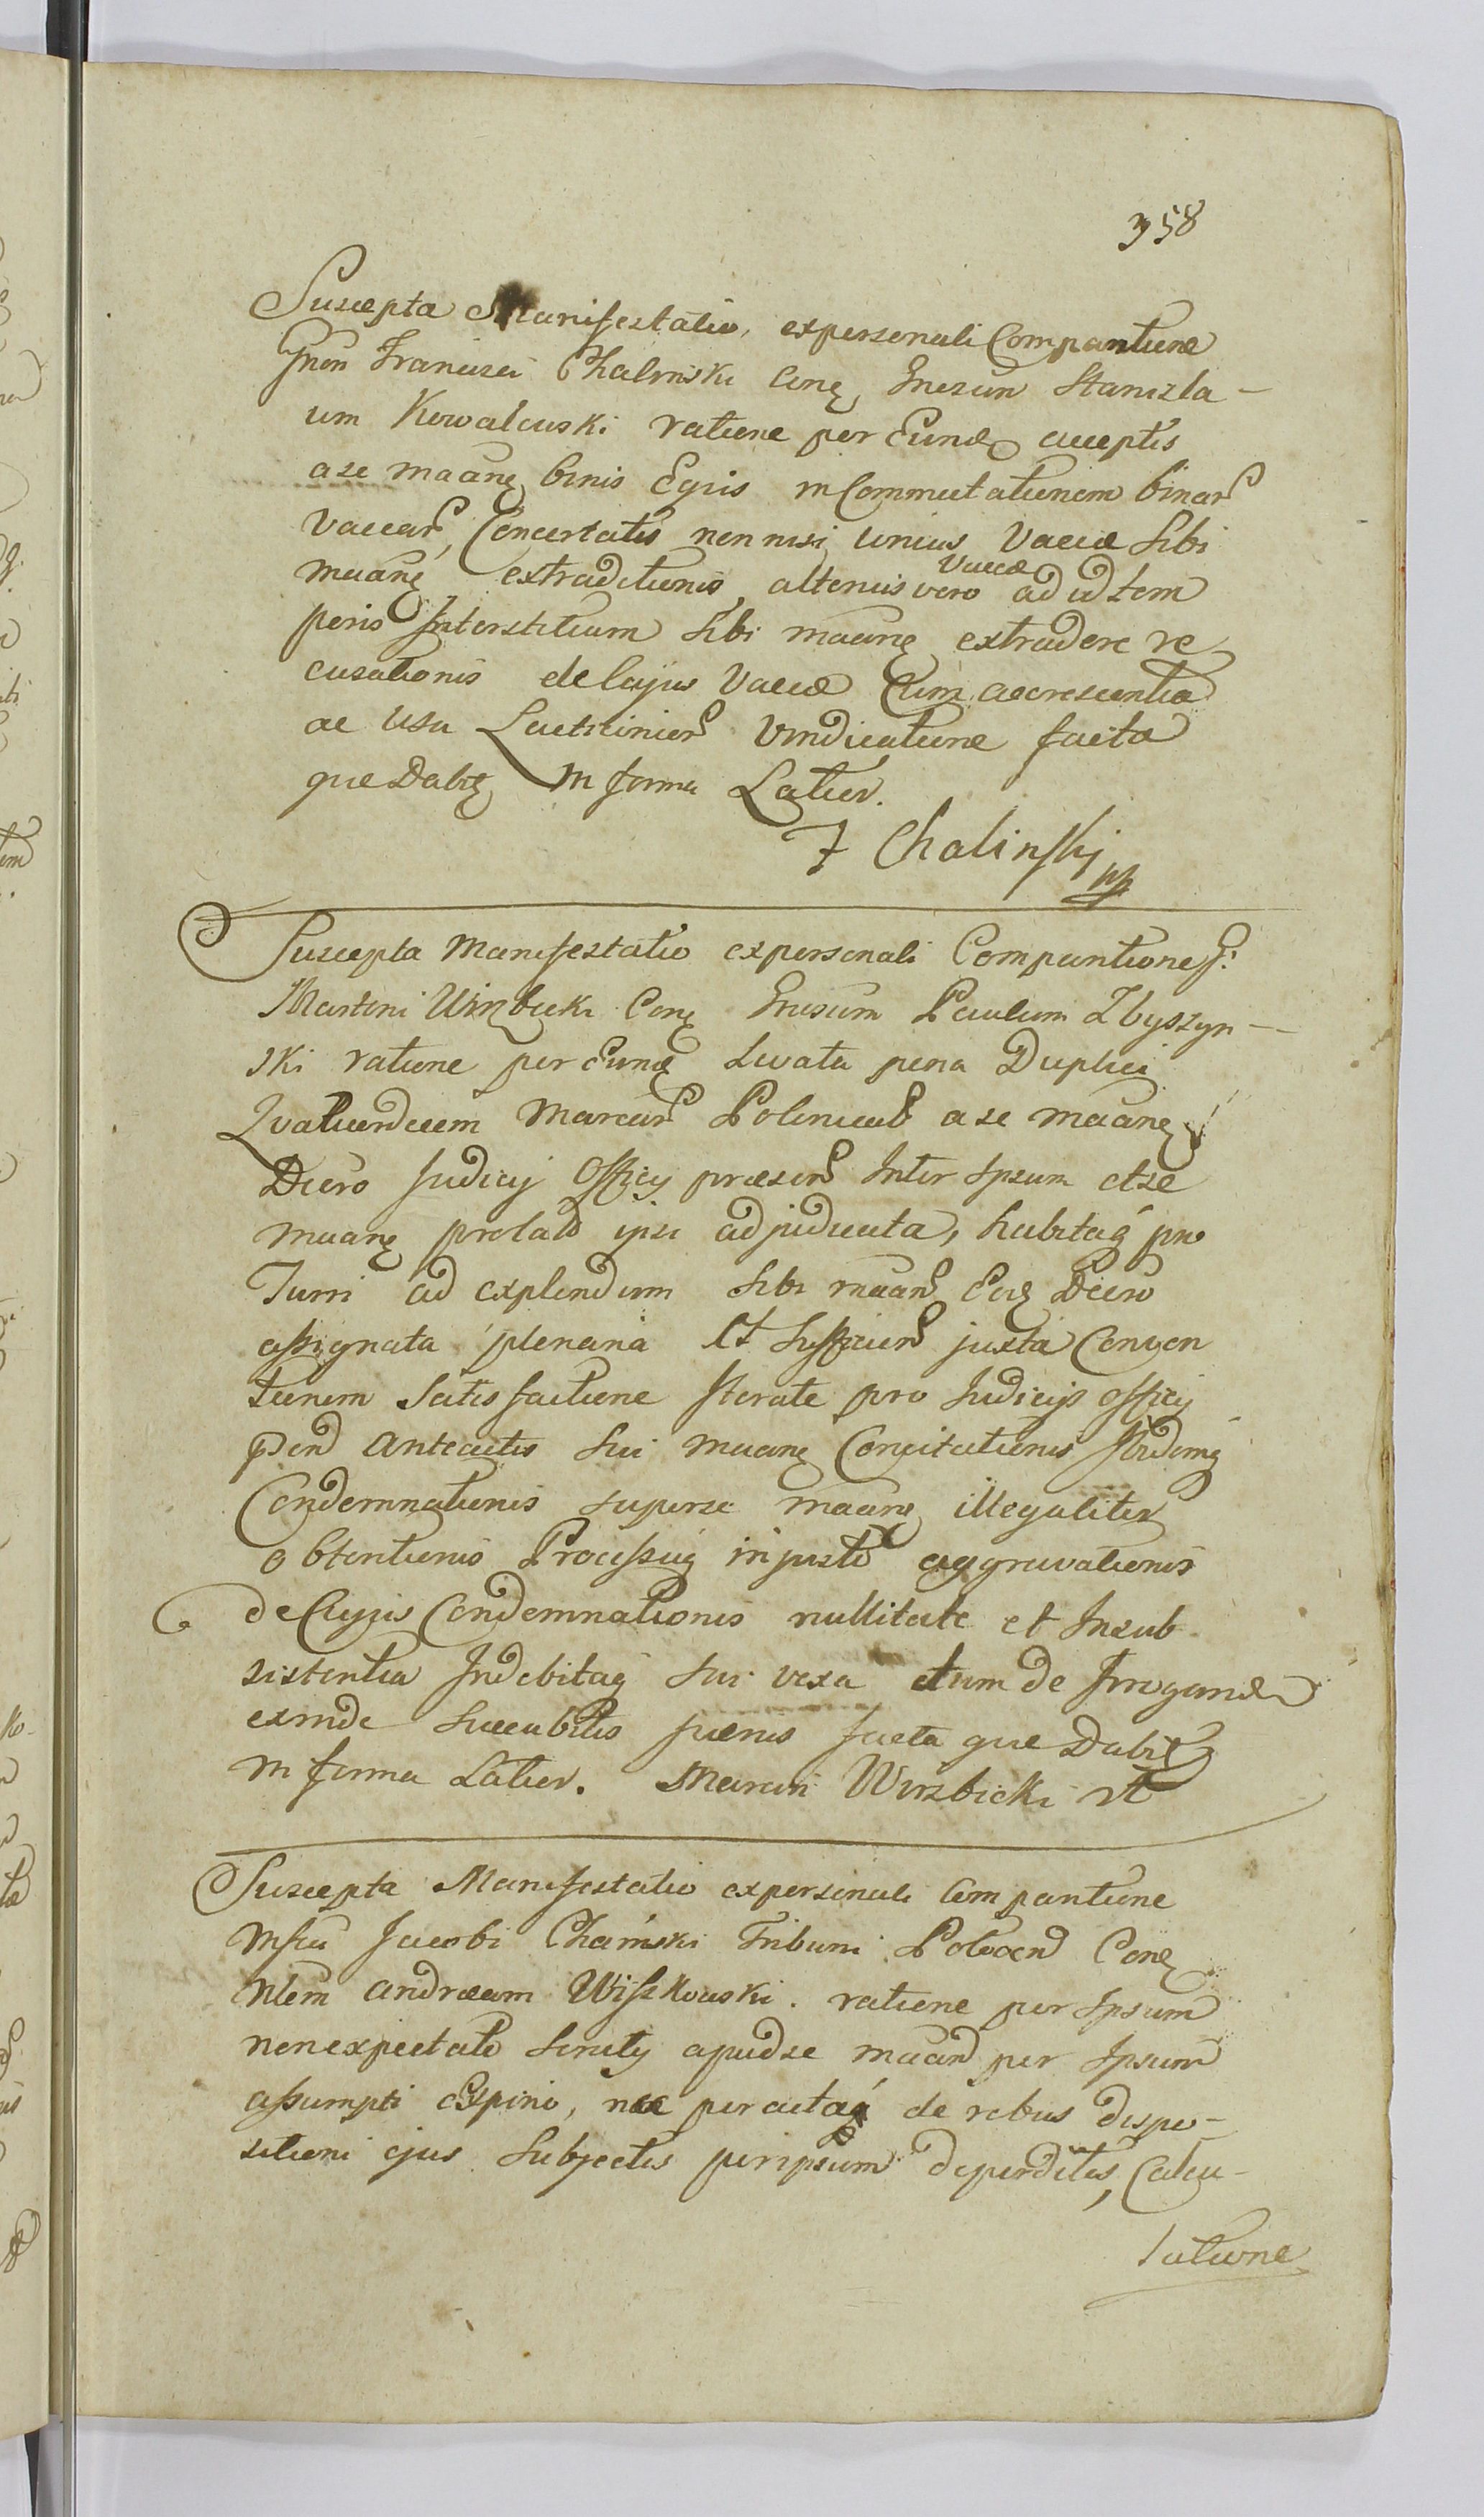 358
Suscepta Manifestatio, ex personali Comparitione
Gnsi Francisci Chalinski Cone Gnosum Stanisla-
um Kowalewski ratione per Eunde acceptis
a se maane binis Equis in Commutationem binar
Vaccar, Concertatis non nisi unius Vaccæ sibi
maane extraditionis, alterius vero Vaccæ ad id tem
peris Interstitium sibi maane extradere re
cusationis de Cujus Vaccæ Cum accrescentia
ac Usu Lacticinior Vindicatione facta
que Dabit in forma Latior.
F Chalinskj mp
Suscepta Manifestatio ex personali Comparitione G:
Martini Wirzbicki Cone Gnosum Paulum Zbyszyn-
ski ratione per Eunde levata pena Duplici
Quatuordecem Marcar Polonical a se maane
Decro Judicij Officij præsen Inter Ipsum et se
maane prolato ipsi adjudicata, habitaq pro
Turri ad explendum sibi maan Eod Decro
assignata plenaria Et Sufficien juxta Conven
tionem Satisfactione Iterate pro Judicijs Officij
pend anteactis sui maane Concitationis Ibidemq
Condemnationis super se maane illegaliter
obtentionis Processuq injuste aggravationis
de Cujus Condemnationis nullitate et Insub
sistentia Indebitaq sui vexa tum de Irrogand
exinde succubitis pænis facta que Dabit
in forma Latior. Marcin Wirzbicki
Suscepta Manifestatio ex personali Comparitione
Mfci Jacobi Chamski Tribuni Plocen Cone
Nlem Andræam Wiszkowski. ratione per Ipsum
non expectato servitij apud se maan per Ipsum
assumpti Expirio, nec peractaq de rebus dispo-
sitioni ejus Subjectis per ipsum deperditis, Calcu-
latione